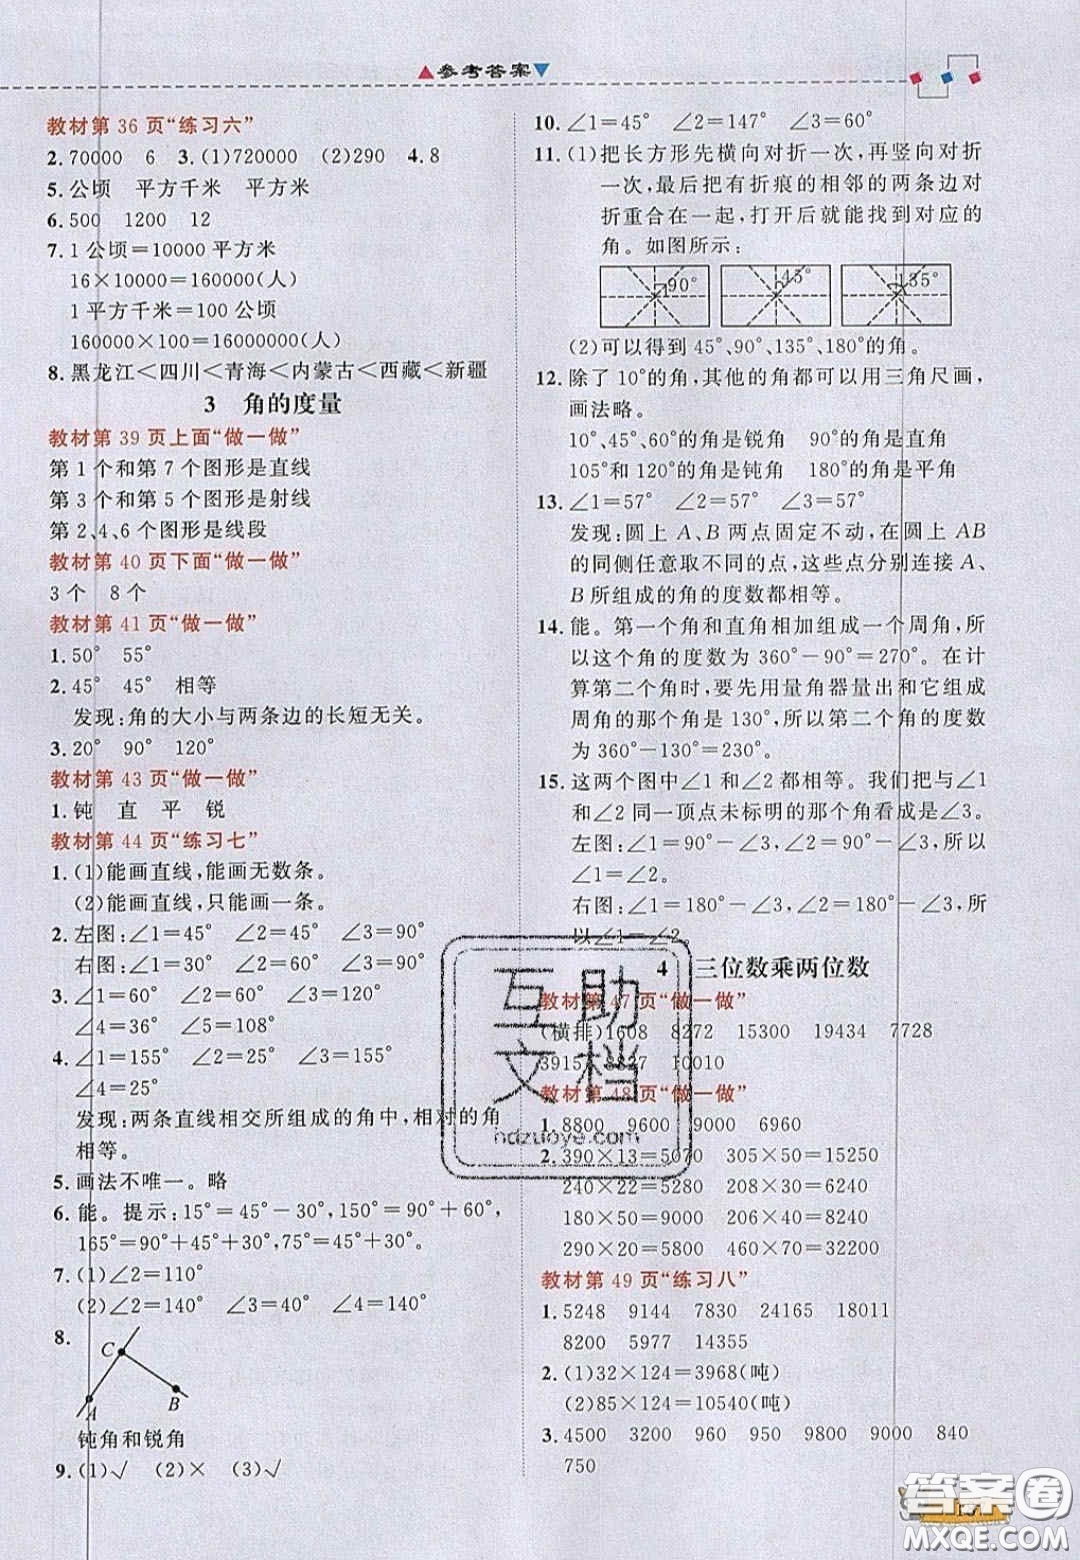 ▲参考答案▼
教材第 36 页“练习六”
2.70000 6 3.(1)720000 (2)290 4.8
5.公顷 平方千米 平方米
6.500 1200 12
7.1 公顷＝10000 平方米
16×10000＝160000(人)
1 平方千米＝100 公顷
160000×100＝16000000(人)
8.黑龙江＜四川＜青海＜内蒙古＜西藏＜新疆
3 角的度量
教材第 39 页上面“做一做”
第 1 个和第 7 个图形是直线
第 3 个和第 5 个图形是射线
第 2、4、6 个图形是线段
教材第 40 页下面“做一做”
3 个 8 个
教材第 41 页“做一做”
1.50° 55°
2.45° 45° 相等
发现:角的大小与两条边的长短无关。
3.20° 90° 120°
教材第 43 页“做一做”
1.钝 直 平 锐
教材第 44 页“练习七”
1.(1)能画直线,能画无数条。
(2)能画直线,只能画一条。
2.左图:∠1＝45° ∠2＝45° ∠3＝90°
右图:∠1＝30° ∠2＝60° ∠3＝90°
3.∠1＝60° ∠2＝60° ∠3＝120°
∠4＝36° ∠5＝108°
4.∠1＝155° ∠2＝25° ∠3＝155°
∠4＝25°
发现:两条直线相交所组成的角中,相对的角
相等。
5.画法不唯一。略
6.能。提示:15°＝45°－30°,150°＝90°＋60°,
165°＝90°＋45°＋30°,75°＝45°＋30°。
7.(1)∠2＝110°
(2)∠2＝140° ∠3＝40° ∠4＝140°
8.
C
A
B
钝角和锐角
9.(1)√ (2)× (3)√
10.∠1＝45° ∠2＝147° ∠3＝60°
11.(1)把长方形先横向对折一次,再竖向对折
一次,最后把有折痕的相邻的两条边对
折重合在一起,打开后就能找到对应的
角。如图所示:
90° 45° 135°
(2)可以得到 45°、90°、135°、180°的角。
12.除了 10°的角,其他的角都可以用三角尺画,
画法略。
10°、45°、60°的角是锐角 90°的角是直角
105°和 120°的角是钝角 180°的角是平角
13.∠1＝57° ∠2＝57° ∠3＝57°
发现:圆上 A、B 两点固定不动,在圆上 AB
的同侧任意取不同的点,这些点分别连接 A、
B 所组成的角的度数都相等。
14.能。第一个角和直角相加组成一个周角,所
以这个角的度数为 360°－90°＝270°。在计
算第二个角时,要先用量角器量出和它组成
周角的那个角是 130°,所以第二个角的度数
为 360°－130°＝230°。
15.这两个图中∠1 和∠2 都相等。我们把与∠1
和∠2 同一顶点未标明的那个角看成是∠3。
左图:∠1＝90°－∠3,∠2＝90°－∠3,所以
∠1＝∠2。
右图:∠1＝180°－∠3,∠2＝180°－∠3,所
以∠1＝∠2
4 三位数乘两位数
教材第 47 页“做一做”
(横排)1608 8272 15300 19434 7728
3915 10010
教材第 48 页“做一做”
1.8800 9600 9000 6960
2.390×13＝5070 305×50＝15250
240×22＝5280 208×30＝6240
180×50＝9000 206×40＝8240
290×20＝5800 460×70＝32200
教材第 49 页“练习八”
1.5248 9144 7830 24165 18011
8200 5977 14355
2.(1)32×124＝3968(吨)
(2)85×124＝10540(吨)
3.4500 3200 960 950 9800 9000 840
750
互助
文档
hdzuoye.com
答案圈
MXQE.COM